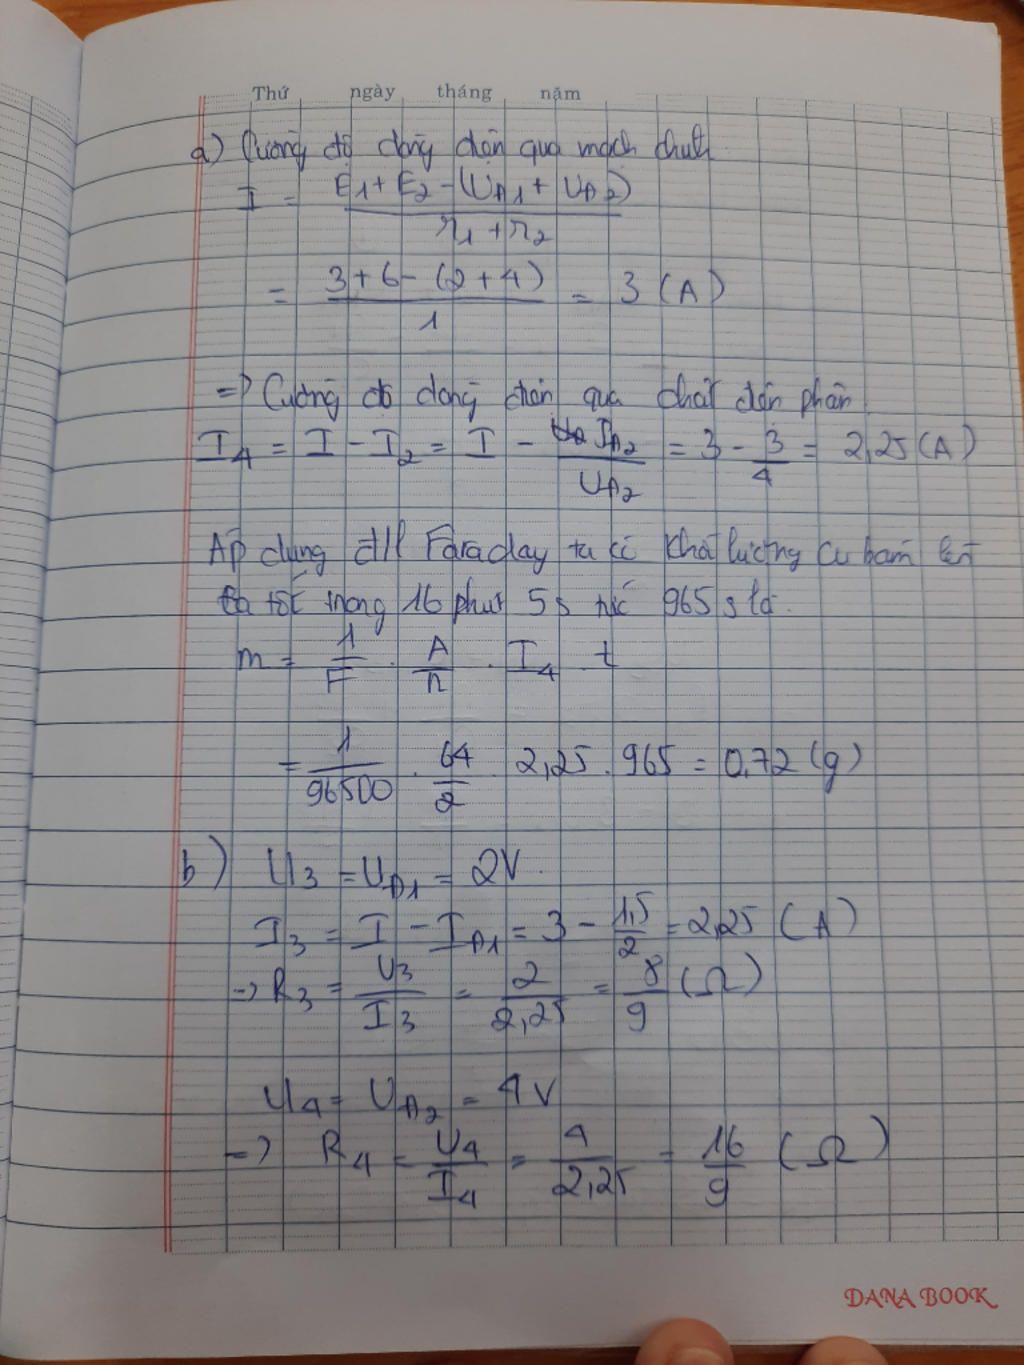 Thứ ngày tháng năm
a) Cường độ dòng điện qua mạch chính
I = E1 + E2 - (UĐ1 + UĐ2) / r1 + r2
= 3 + 6 - (2 + 4) / 1 = 3 (A)
=> Cường độ dòng điện qua chất điện phân
I4 = I - I2 = I - IĐ2 / UĐ2 = 3 - 3/4 = 2,25 (A)
Áp dụng đll Faraday ta có khối lượng Cu bám lên
ca tốt trong 16 phút 5s tức 965 s là.
m = 1/F . A/n . I4 . t
= 1/96500 . 64/2 . 2,25 . 965 = 0,72 (g)
b) U3 = UĐ1 = 2V.
I3 = I - IĐ1 = 3 - 1,5/2 = 2,25 (A)
=> R3 = U3/I3 = 2/2,25 = 8/9 (Ω)
U4 = UĐ2 = 4V
=> R4 = U4/I4 = 4/2,25 = 16/9 (Ω)
DANA BOOK